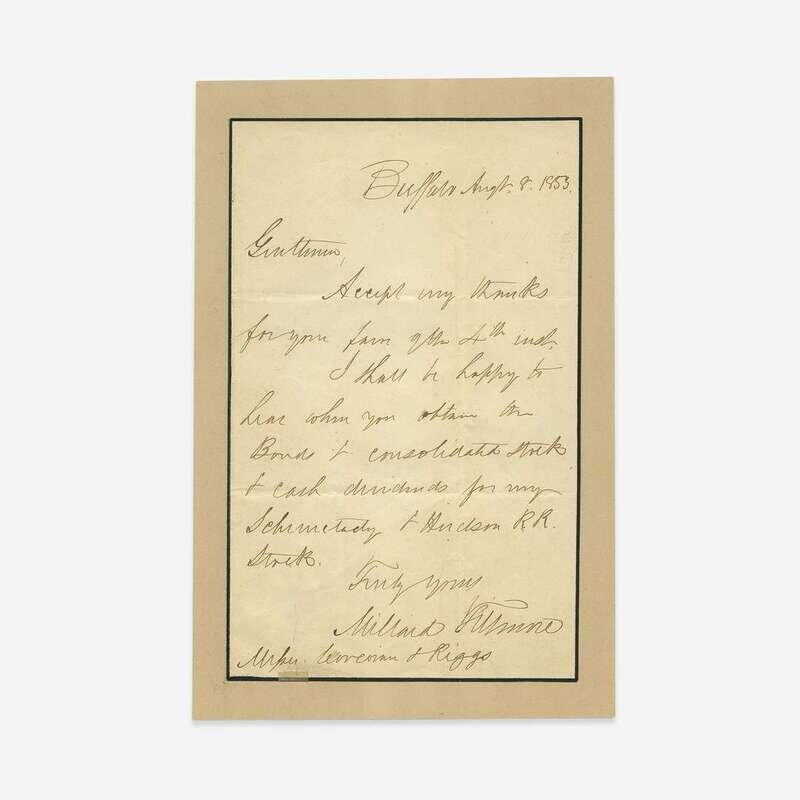 Buffalo Augt. 8. 1853.
Gentlemen,
Accept my thanks
for your favor of the 4th inst.
I shall be happy to
hear when you obtain the
Bonds & consolidated stock
& cash dividends for my
Schenectady & Hudson R.R.
Stock.
Truly yours
Millard Fillmore
Messrs. & Riggs